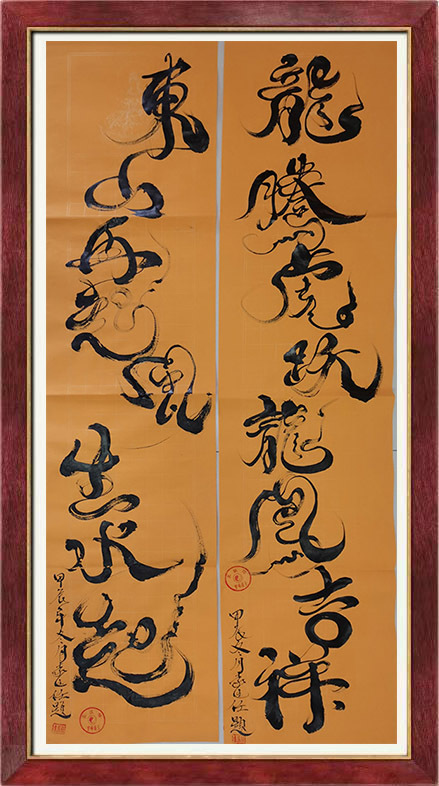 龍騰虎跃龍鳳吉祥
甲辰冬月
東山再起風生水起
甲辰年冬月